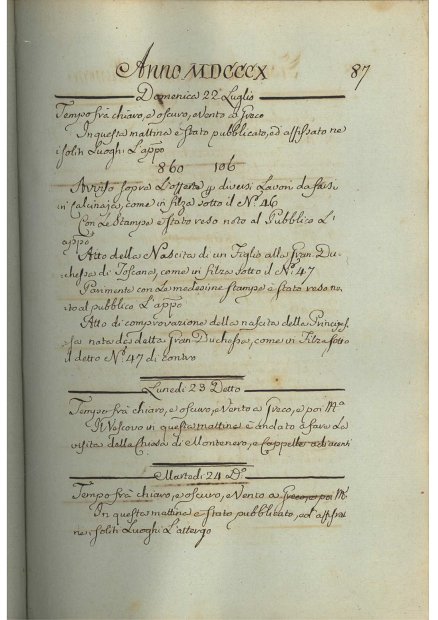 Anno MDCCCX 87
Domenica 22 Luglio
Tempo frà chiaro, e oscuro, e Vento a Greco
In questa mattina è stato pubblicato, ed' affissato ne
i soliti Luoghi L'appo
860 106
Avviso sopra L'offerte p diversi Lavori da farsi
in Salviaja, come in filza sotto il N.º 46
Con Le Stampe è stato reso noto al Pubblico L'
appo
Atto della Nascita di un Figlio alla Gran Du-
chessa di Toscana, come in filza sotto il N.º 47
Parimente con Le medesime stampe è stato reso no-
to al pubblico L'appo
Atto di comprovazione della nascita della Principes-
sa nata de detta Gran-Duchessa, come in Filza sotto
il detto N.º 47 di contro
Lunedì 23 Detto
Tempo frà chiaro, e oscuro, e Vento a Greco, e poi M.a
Il Vescovo in questa mattina è andato a fare La
visita della Chiesa di Montenero, e Cappelle adiacenti
Martedì 24 D.o
Tempo frà chiaro, e oscuro, e Vento a Greco, e poi M.
In questa mattina è stato pubblicato, ed' affissa
ne i soliti Luoghi L'attergo